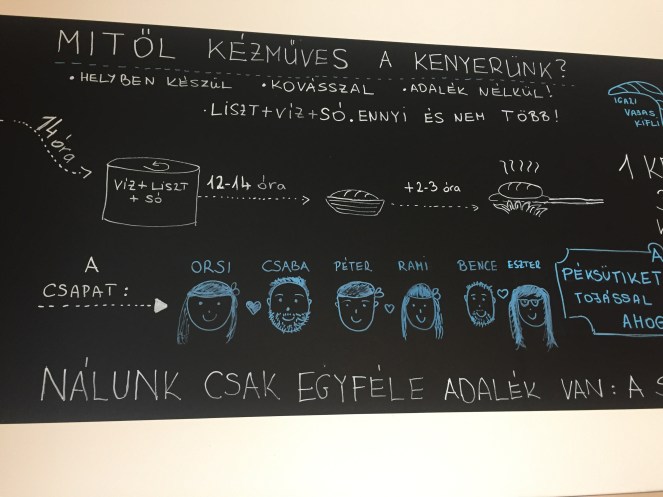 MITŐL KÉZMŰVES A KENYERÜNK?
• HELYBEN KÉSZÜL • KOVÁSSZAL • ADALÉK NÉLKÜL!
• LISZT+VÍZ+SÓ. ENNYI ÉS NEM TÖBB!
IGAZI
VAJAS
KIFLI
14 óra
VÍZ + LISZT
+ SÓ
12-14 óra
+2-3 óra
1 K
A
CSAPAT:
ORSI CSABA PÉTER RAMI BENCE ESZTER
A
PÉKSÜTIKET
TOJÁSSAL
AHOG
NÁLUNK CSAK EGYFÉLE ADALÉK VAN: A S